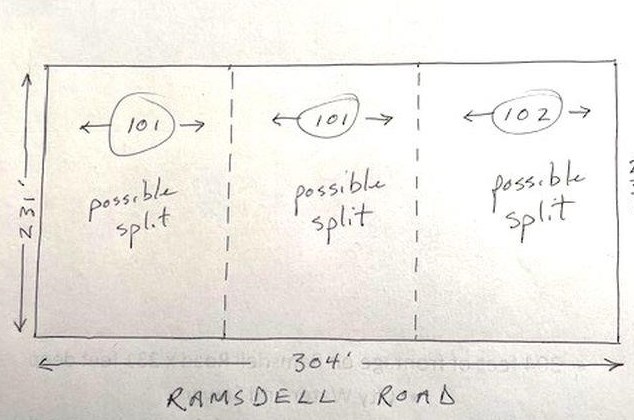 101 101 102
possible possible possible
split split split
231'
304'
RAMSDELL ROAD